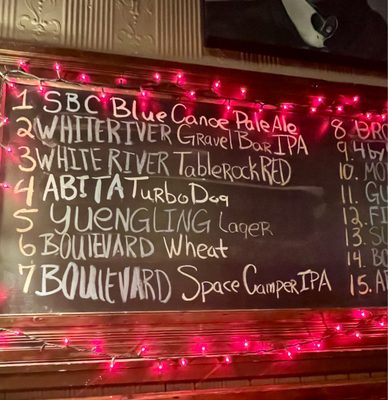 1 SBC Blue Canoe Pale Ale
2 WHITERIVER Gravel Bar IPA
3 WHITE RIVER TableRock RED
4 ABITA Turbo Dog
5 YUENGLING Lager
6 BOULEVARD Wheat
7 BOULEVARD Space Camper IPA
8.
9.
10.
11.
12.
13.
14.
15.